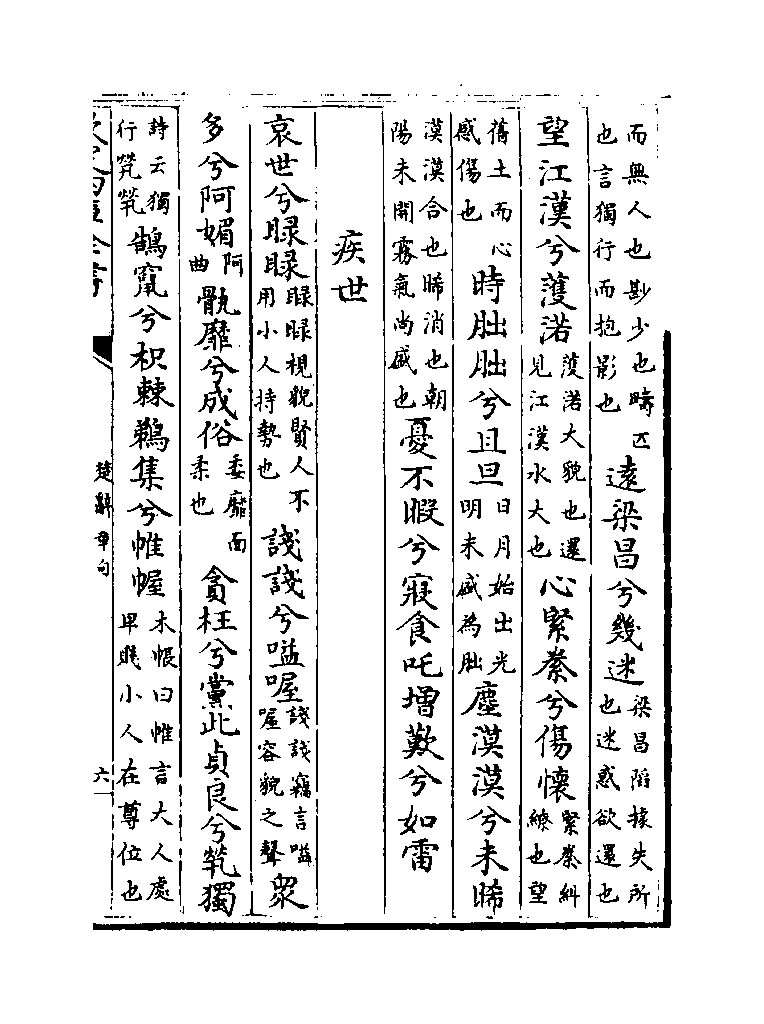 而無人也尠少也疇匹
也言獨行而抱影也
遠梁昌兮幾迷
梁昌蹈據失所
也迷惑欲還也
望江漢兮濩渃
濩渃大貌也還
見江漢水大也
心緊絭兮傷懷
緊絭糾
繚也望
舊土而心
感傷也
時朏朏兮且旦
日月始出光
明未盛為朏
塵漠漠兮未晞
漠漠合也晞消也朝
陽未開霧氣尚盛也
憂不暇兮寢食吒增歎兮如雷
疾世
哀世兮睩睩
睩睩視貌賢人不
用小人持勢也
諓諓兮嗌喔
諓諓竊言嗌
喔容貌之聲
衆
多兮阿媚
阿
曲
骫靡兮成俗
委靡面
柔也
貪枉兮黨比貞良兮煢獨
詩云獨
行煢煢
鵠竄兮枳棘鵜集兮帷幄
木帳曰帷言大人處
卑賤小人在尊位也
楚辭章句
六